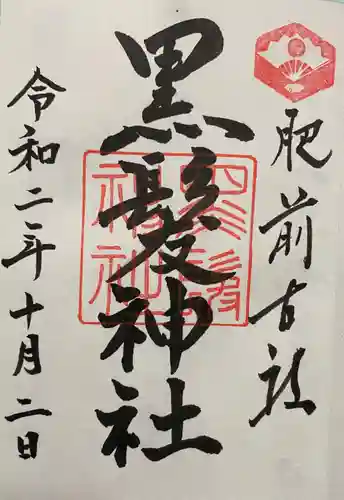 肥前古社
黒髪神社
黒髪神社
令和二年十月二日